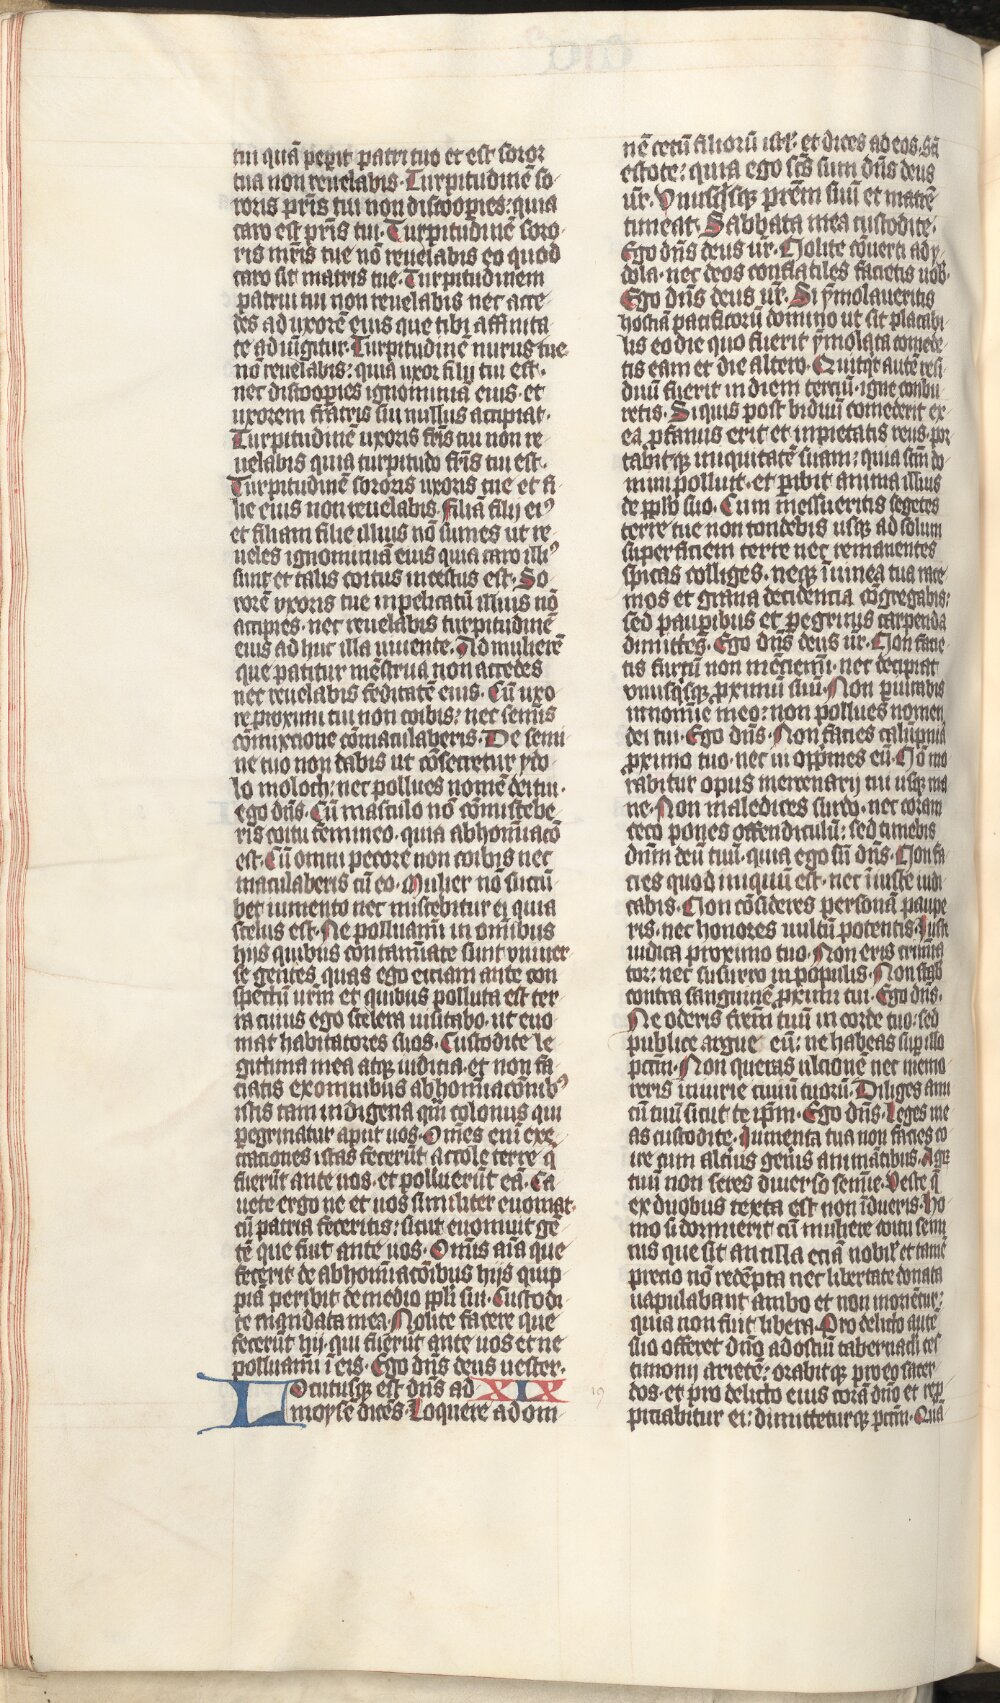 tui quā peperit patri tuo et est soror
tua non reuelabis. Turpitudinē so
roris pr̄is tui non discooperies: quia
caro est pr̄is tui. Turpitudinē soro
ris mr̄is tue nō reuelabis eo quod
caro sit matris tue. Turpitudinem
patrui tui non reuelabis nec acce
des ad uxorē eius que tibi affinita
te adiūgitur. Turpitudinē nurus tue
nō reuelabis: quia uxor filij tui est.
nec discooperies ignominiā eius. et
uxorem fratris sui nullus accipiat.
Turpitudinē uxoris fr̄is tui non re
uelabis quia turpitudo fr̄is tui est.
Turpitudinē sororis uxoris tue et fi
lie eius non reuelabis. Filiā filij eiꝰ
et filiam filie illius nō sumes ut re
ueles ignominiā eius quia caro illiꝰ
sunt et talis coitus incestus est. So
rorē uxoris tue in pelicatū illius nō
accipies. nec reuelabis turpitudinē
eius ad huc illa uiuente. Ad mulierē
que patitur mēstrua non accedes
nec reuelabis feditatē eius. Cū uxo
re proximi tui non coibis: nec semīs
cōmixtione cōmaculaberis. De semi
ne tuo non dabis ut cōsecretur ydo
lo moloch: nec pollues nomē dei tui.
ego dn̄s. Cū masculo nō cōmiscebe
ris coitu femineo. quia abhominacō
est. Cū omni pecore non coibis nec
maculaberis cū eo. Mulier nō succū
bet iumento nec miscebitur ei quia
scelus est. Ne polluami in omībus
hijs quibus contaminate sunt vniuer
se gentes quas ego eiciam ante con
spectū ur̄m et quibus polluta est ter
ra cuius ego scelera uisitabo. ut euo
mat habitatores suos. Custodite le
gittima mea atqꝫ iudicia. et non fa
ciatis ex omnibus abhomīacōnibꝰ
istis tam indigena qm̄ colonus qui
peregrinatur aput uos. Omēs eni exe
crationes istas fecerūt accole terre q̄
fuerūt ante uos. et polluerūt eā. Ca
uete ergo ne et uos similiter euomat.
cū patria feceritis: sicut euomuit gē
tē que fuit ante uos. Omīs aīa que
fecerit de abhomīacōibus hijs quip
piā peribit de medio ppl̄i sui. Custodi
te mandata mea. Nolite facere que
fecerūt hij. qui fuerūt ante uos et ne
polluami ī eis. Ego dn̄s deus uester.
Locutusqꝫ est dn̄s ad XIX
moyse dices. Loquere ad om
nē cetū filiorū isrl̄. et dices ad eos. Sā
estote: quia ego sc̄s sum dn̄s deus
ur̄. Vnusq̄sqꝫ pr̄em suū et matrē
timeat. Sabbata mea custodite.
Ego dn̄s deus ur̄. Nolite cōuerti ad y
dola. nec deos conflatiles facietis uob̄
Ego dn̄s deus ur̄. Si ȳmolaueritis
hostiā pacificorū domino ut sit placabi
lis eo die quo fuerit ȳmolata comede
tis eam et die altero. Quitqͥt autē resi
duū fuerit in diem terciū. igne conbu
retis. Siquis post biduū comederit ex
ea ꝓfanus erit et inpietatis reus. por
tabitqꝫ iniquitatē suam: quia scm̄ do
mini polluit. et ꝑibit anima illius
de ppl̄o suo. Cum messueritis segetes
terre tue non tondebis usqꝫ ad solum
superficiem terre nec remanentes
spicas colliges. neqꝫ ī uinea tua race
mos et grana decidencia cōgregabis:
sed pauꝑibus et ꝑegrinis carpenda
dimittes. Ego dn̄s deus ur̄. Non facie
tis furtū non mēciemī. nec decipiat
vnusq̄sqꝫ ꝓximū suū. Non ꝑiurabis
ī nomīe meo: non pollues nomen
dei tui. Ego dn̄s. Non facies calūpnia
ꝓximo tuo. nec ui opp̄mes eū. Nō mo
rabitur opus mercenarij tui usqꝫ ma
ne. Non maledices surdo. nec coram
ceco pones offendiculū: sed timebis
dn̄m deū tuū. quia ego sū dn̄s. Non fa
cies quod iniquū est. nec īiuste iudi
cabis. Non cōsideres personā paupe
ris. nec honores uultū potentis. Juste
iudica proximo tuo. Non eris crimīa
tor: nec susurro in populis. Non stab̄
contra sanguinē ꝓximi tui. Ego dn̄s.
Ne oderis frēm tuū in corde tuo: sed
publice argue eū: ne habeas suꝑ illo
pctm̄. Non queras ulcionē nec memo
reris iniurie ciuiū tuorū. Diliges ami
cū tuū sicut te ip̄m. Ego dn̄s. Leges me
as custodite. Jumenta tua non facies co
ire cum alterius generis animātibus. Agrū
tuū non seres diuerso semīe. Veste q̄
ex duobus texta est non īdueris. Ho
mo si dormierit cū muliere coitu semi
nis que sit ancilla eciā nobil̄ et tamē
precio nō redēpta nec libertate donata
uapulabunt ambo et non moriētur:
quia non fuit libera. Pro delicto autē
suo offeret dn̄o ad ostiū tabernacli tes
timonij arietē: orabitqꝫ pro eo sacer
dos. et pro delicto eius corā dn̄o et rep
piciabitur ei: dimitteturqꝫ pctm̄. Quā
19